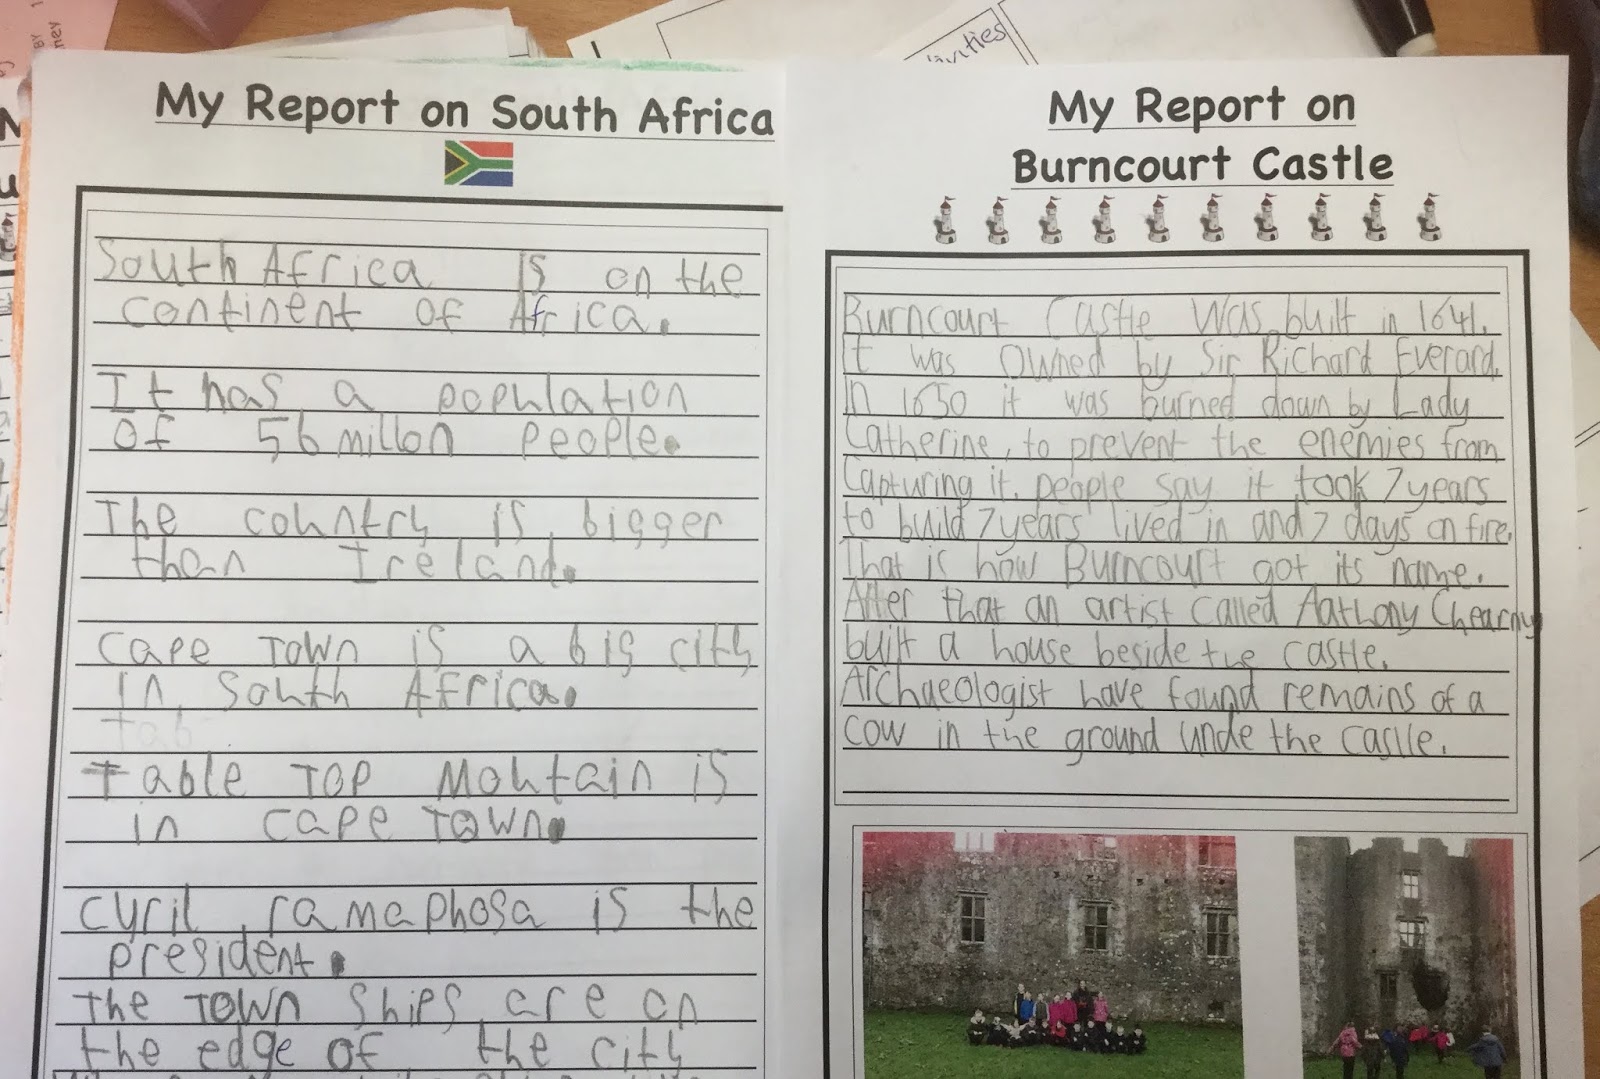 My Report on South Africa
South Africa is on the
continent of Africa.
It has a population
of 56 millon people.
The country is bigger
than Ireland.
Cape Town is a big city
in South Africa.
Tab
Table Top Mountain is
in Cape Town.
Cyril ramaphosa is the
president.
The Town ships are on
the edge of the city
My Report on
Burncourt Castle
Burncourt Castle was built in 1641.
It was owned by Sir Richard Everard.
In 1650 it was burned down by Lady
Catherine, to prevent the enemies from
Capturing it. people say it took 7 years
to build 7 years lived in and 7 days on fire.
That is how Burncourt got its name.
After that an artist called Aathony Chearny
built a house beside the castle.
Archaeologist have found remains of a
cow in the ground unde the casle.
ivities